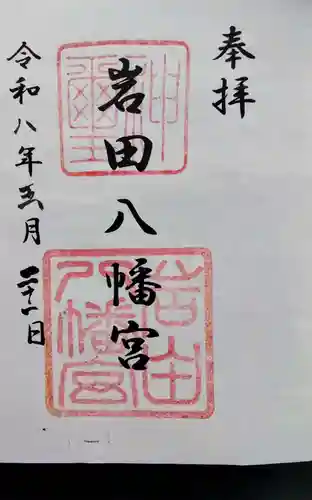 奉拝
岩田八幡宮
令和八年五月二十一日
神璽
岩田八幡宮